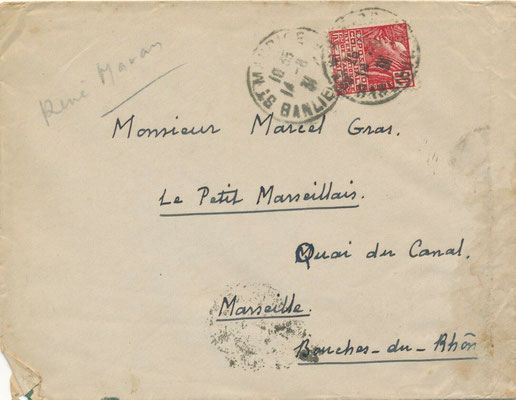 René Maran
Monsieur Marcel Gras.
Le Petit Marseillais.
Quai du Canal.
Marseille.
Bouches-du-Rhône